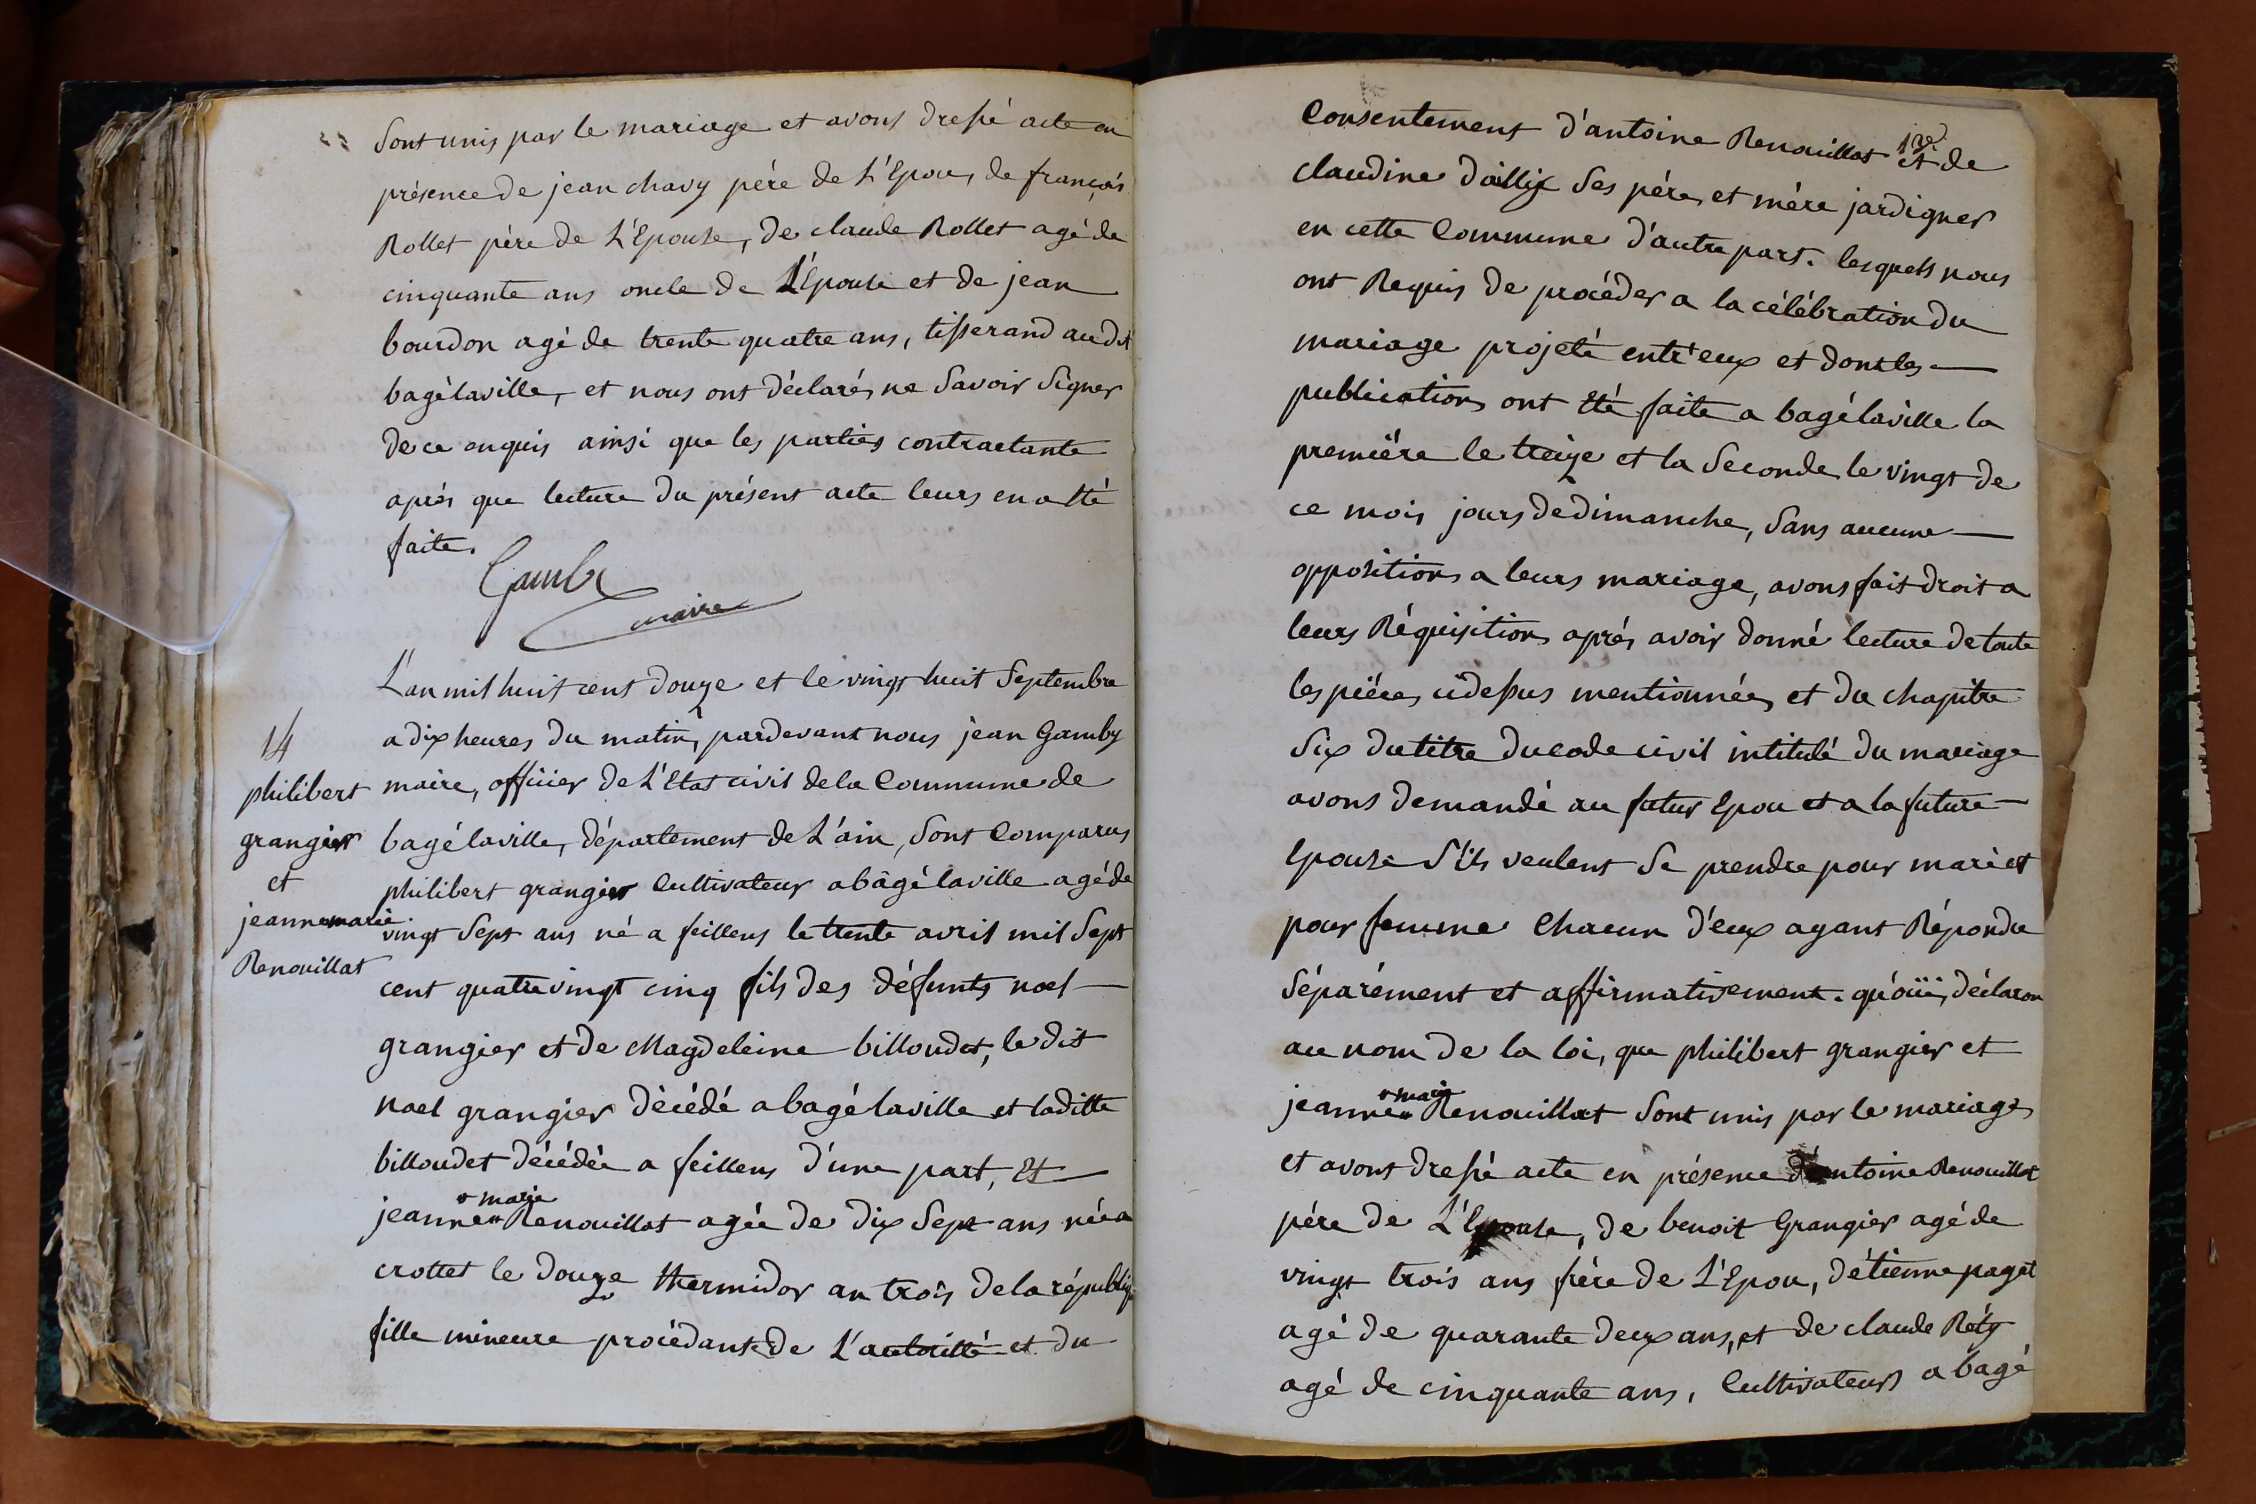 Sont unis par le mariage et avons dressé acte en
présence de jean chavy pére de L'Epou, de françois
Rollet pére de L'Epouse, de claude Rollet agé de
cinquante ans oncle de L'Epouse et de jean
bourdon agé de trente quatre ans, tisserand audit
bagélaville, et nous ont déclarés ne Savoir Signer
de ce enquis ainsi que les parties contractante
aprés que lecture du présent acte leurs en a Eté
faite.
Gamby
maire
14
philibert
grangier
et
jeanne marie
Renouillat
L'an mil huit cent douze et le vingt huit Septembre
a dix heures du matin, pardevant nous jean Gamby
maire, officier de L'Etat civil dela Commune de
bagélaville, département de L'ain, Sont Comparus
philibert grangier Cultivateur a bâgélaville agé de
vingt Sept ans né a feillens le trente avril mil Sept
cent quatrevingt cinq fils des défunts noel
grangier et de Magdeleine billoudet, le dit
noel grangier décédé a bagélaville et laditte
billoudet décédée a feillens d'une part, Et
jeanne marie Renouillat agée de dix Sept ans née a
crottet le douze thermidor an trois dela républiq
fille mineure procédant de L'autorité et du
Consentement d'antoine Renouillat et de
claudine dailly Ses pére et mére jardigner
en cette Commune d'autre part. lesquels nous
ont Requis de procéder a la célébration du
mariage projeté entr'eux et dont les
publications ont Eté faite a bagélaville la
premiére le treize et la Seconde le vingt de
ce mois jours de dimanche, Sans aucune
oppositions a leurs mariage, avons fait droit a
leurs Réquisitions aprés avoir donné lecture de toute
les piéces cidessus mentionnées et du chapitre
Six du titre du code civil intitulé du mariage
avons demandé au futur Epou et a la future
Epouse S'ils veulent Se prendre pour mari et
pour femme Chacun d'eux ayant Répondu
Séparément et affirmativement. qu'oüi, déclaron
au nom de la loi, que philibert grangier et
jeanne marie Renouillat Sont unis par le mariage
et avons dressé acte en présence d'antoine Renouillat
pére de L'Epouse, de benoit Grangier agé de
vingt trois ans frére de L'Epou, d'étienne paget
agé de quarante deux ans, et de claude Réty
agé de cinquante ans, Cultivateurs a bagé